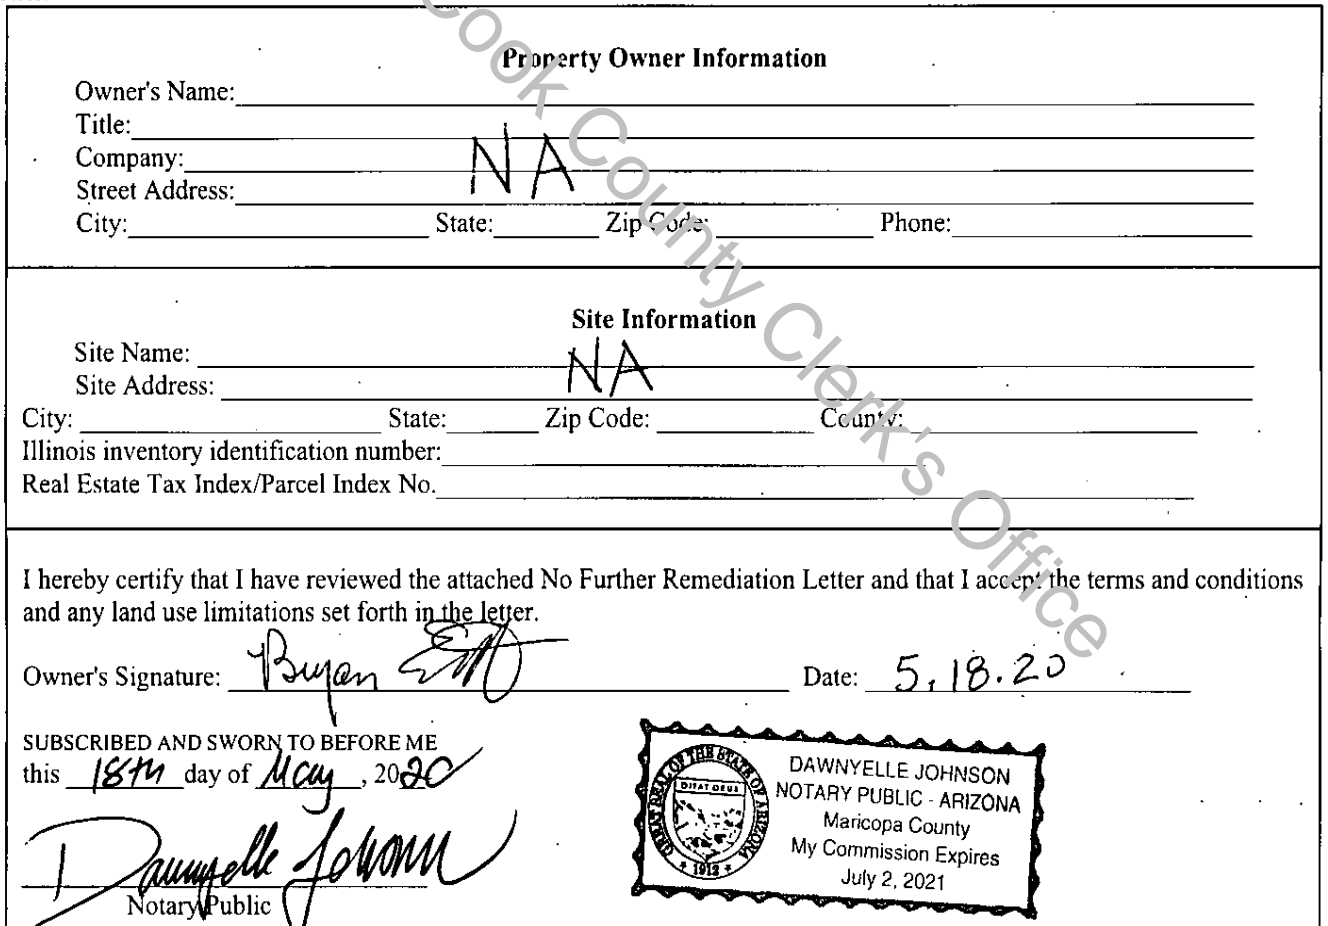 Property Owner Information
Owner's Name:
Title:
Company:
NA
Street Address:
City: State: Zip Code: Phone:
Site Information
Site Name:
NA
Site Address:
City: State: Zip Code: County:
Illinois inventory identification number:
Real Estate Tax Index/Parcel Index No.
I hereby certify that I have reviewed the attached No Further Remediation Letter and that I accept the terms and conditions
and any land use limitations set forth in the letter.
Owner's Signature: Bryan Date: 5.18.20
SUBSCRIBED AND SWORN TO BEFORE ME
this 18th day of May, 2020
Dawnyelle Johnson
Notary Public
GREAT SEAL OF THE STATE OF ARIZONA
DITAT DEUS
1912
DAWNYELLE JOHNSON
NOTARY PUBLIC - ARIZONA
Maricopa County
My Commission Expires
July 2, 2021
Cook County Clerk's Office